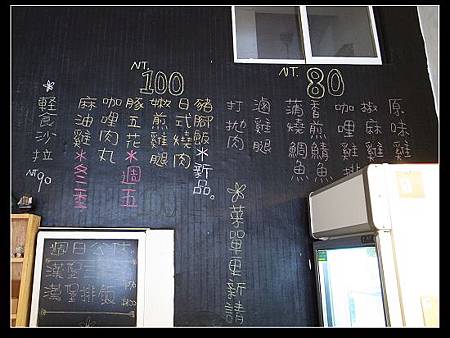 NT. 80
原味雞
椒麻雞
咖哩雞排
香煎鯖魚
蒲燒鯛魚
滷雞腿
打拋肉
NT. 100
豬腳飯＊新品。
日式燒肉
嫩煎雞腿
豚五花＊週五
咖哩肉丸
麻油雞＊冬季
＊輕食沙拉 NT90
＊菜單更新請
漢堡排飯